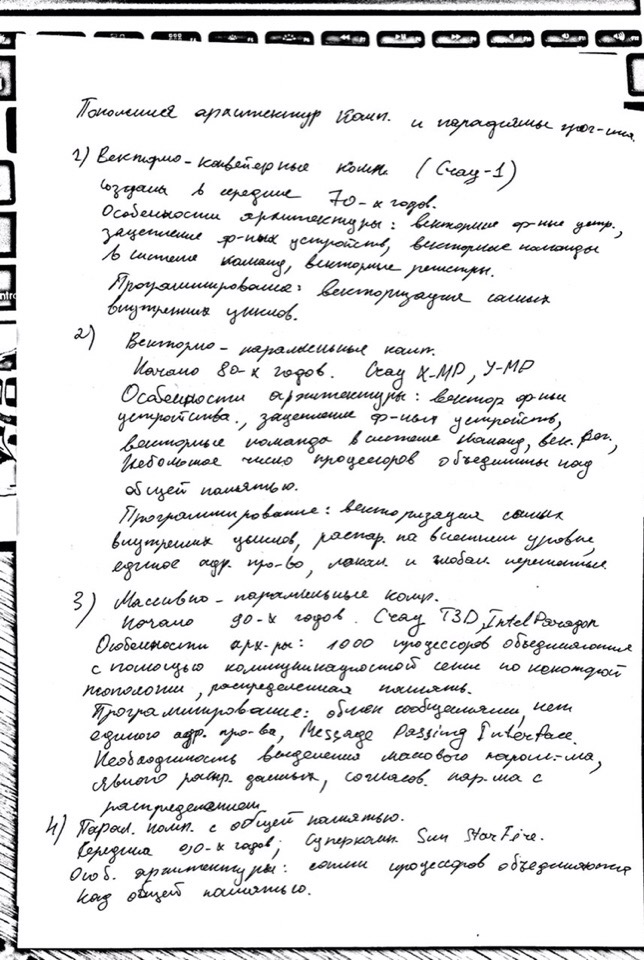 Поколения архитектур комп. и парадигмы прог-ния.
1) Векторно-конвейерные комп. (Cray-1)
созданы в середине 70-х годов.
Особенности архитектуры: векторные ф-ные устр.,
зацепление ф-ных устройств, векторные команды
в системе команд, векторные регистры.
Программирование: векторизация самых
внутренних циклов.
2) Векторно-параллельные комп.
Начало 80-х годов. Cray X-MP, Y-MP
Особенности архитектуры: вектор ф-ные
устройства, зацепление ф-ных устройств,
векторные команды в системе команд, век. рег.,
Небольшое число процессоров объединены над
общей памятью.
Программирование: векторизация самых
внутренних циклов, распар. на внешнем уровне,
единое адр. про-во, локал. и глобал. переменные.
3) Массивно-параллельные комп.
Начало 90-х годов. Cray T3D, Intel Paragon
Особенности арх-ры: 1000 процессоров объединяются
с помощью коммуникационной сети по некоторой
топологии, распределенная память.
Программирование: обмен сообщениями, нет
единого адр. про-ва, Message Passing Interface.
Необходимость выделения массового парал-ма,
явного распр. данных, согласов. пар-ма с
распределением
4) Парал. комп. с общей памятью.
Середина 90-х годов; Суперкомп. Sun StarFire.
Особ. архитектуры: сотни процессоров объединяются
над общей памятью.